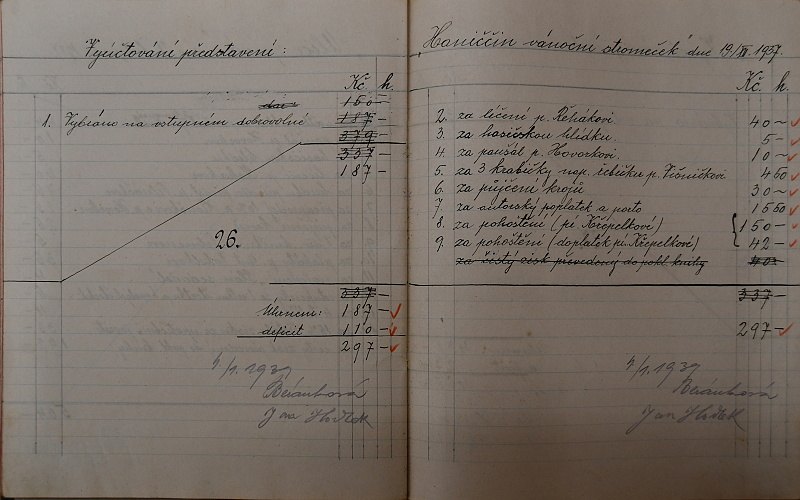 Vyúčtování představení:
Kč h.
150 –
1. Vybráno na vstupném dobrovolné 187 –
379 –
337 –
187 –
26.
337 –
187 –
deficit 110 –
297 –
4/1. 1939
Beránková
Jan
Haniččin vánoční stromeček dne 19/XII. 1937.
Kč h.
2. za léčení p. Řehákovi 40 –
3. za hasičskou hlídku. 5 –
4. za paušál p. Hovorkovi. 10 –
5. za 3 krabičky nap. řebíčku p. Višničkovi 4 50
6. za půjčení krojů 30 –
7. za autorský poplatek a porto 15 50
8. za pohoštění (pí. Křepelkové) 150 –
9. za pohoštění (doplatek pí. Křepelkové) 42 –
za čistý zisk převedený do pokl. knihy
337 –
297 –
4/1. 1939
Beránková
Jan